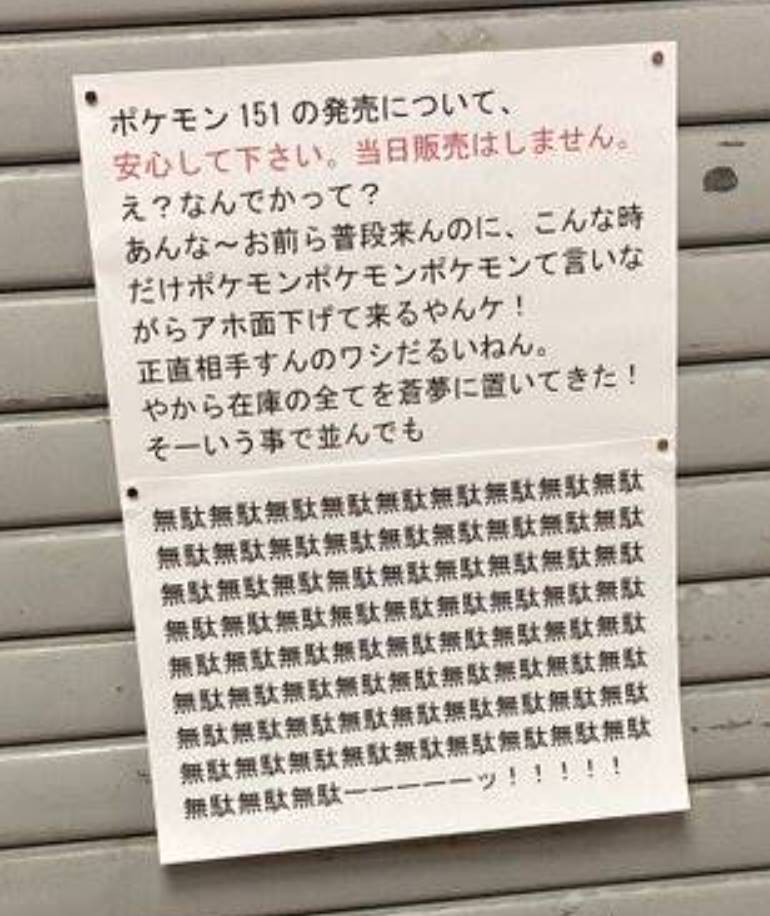 ポケモン151の発売について、
安心して下さい。当日販売はしません。
え？なんでかって？
あんな～お前ら普段来んのに、こんな時
だけポケモンポケモンポケモンて言いな
がらアホ面下げて来るやんケ！
正直相手すんのワシだるいねん。
やから在庫の全てを蒼夢に置いてきた！
そーいう事で並んでも
無駄無駄無駄無駄無駄無駄無駄無駄無駄
無駄無駄無駄無駄無駄無駄無駄無駄無駄
無駄無駄無駄無駄無駄無駄無駄無駄無駄
無駄無駄無駄無駄無駄無駄無駄無駄無駄
無駄無駄無駄無駄無駄無駄無駄無駄無駄
無駄無駄無駄無駄無駄無駄無駄無駄無駄
無駄無駄無駄無駄無駄無駄無駄無駄無駄
無駄無駄無駄無駄無駄無駄無駄無駄無駄
無駄無駄無駄ーーーーーッ！！！！！